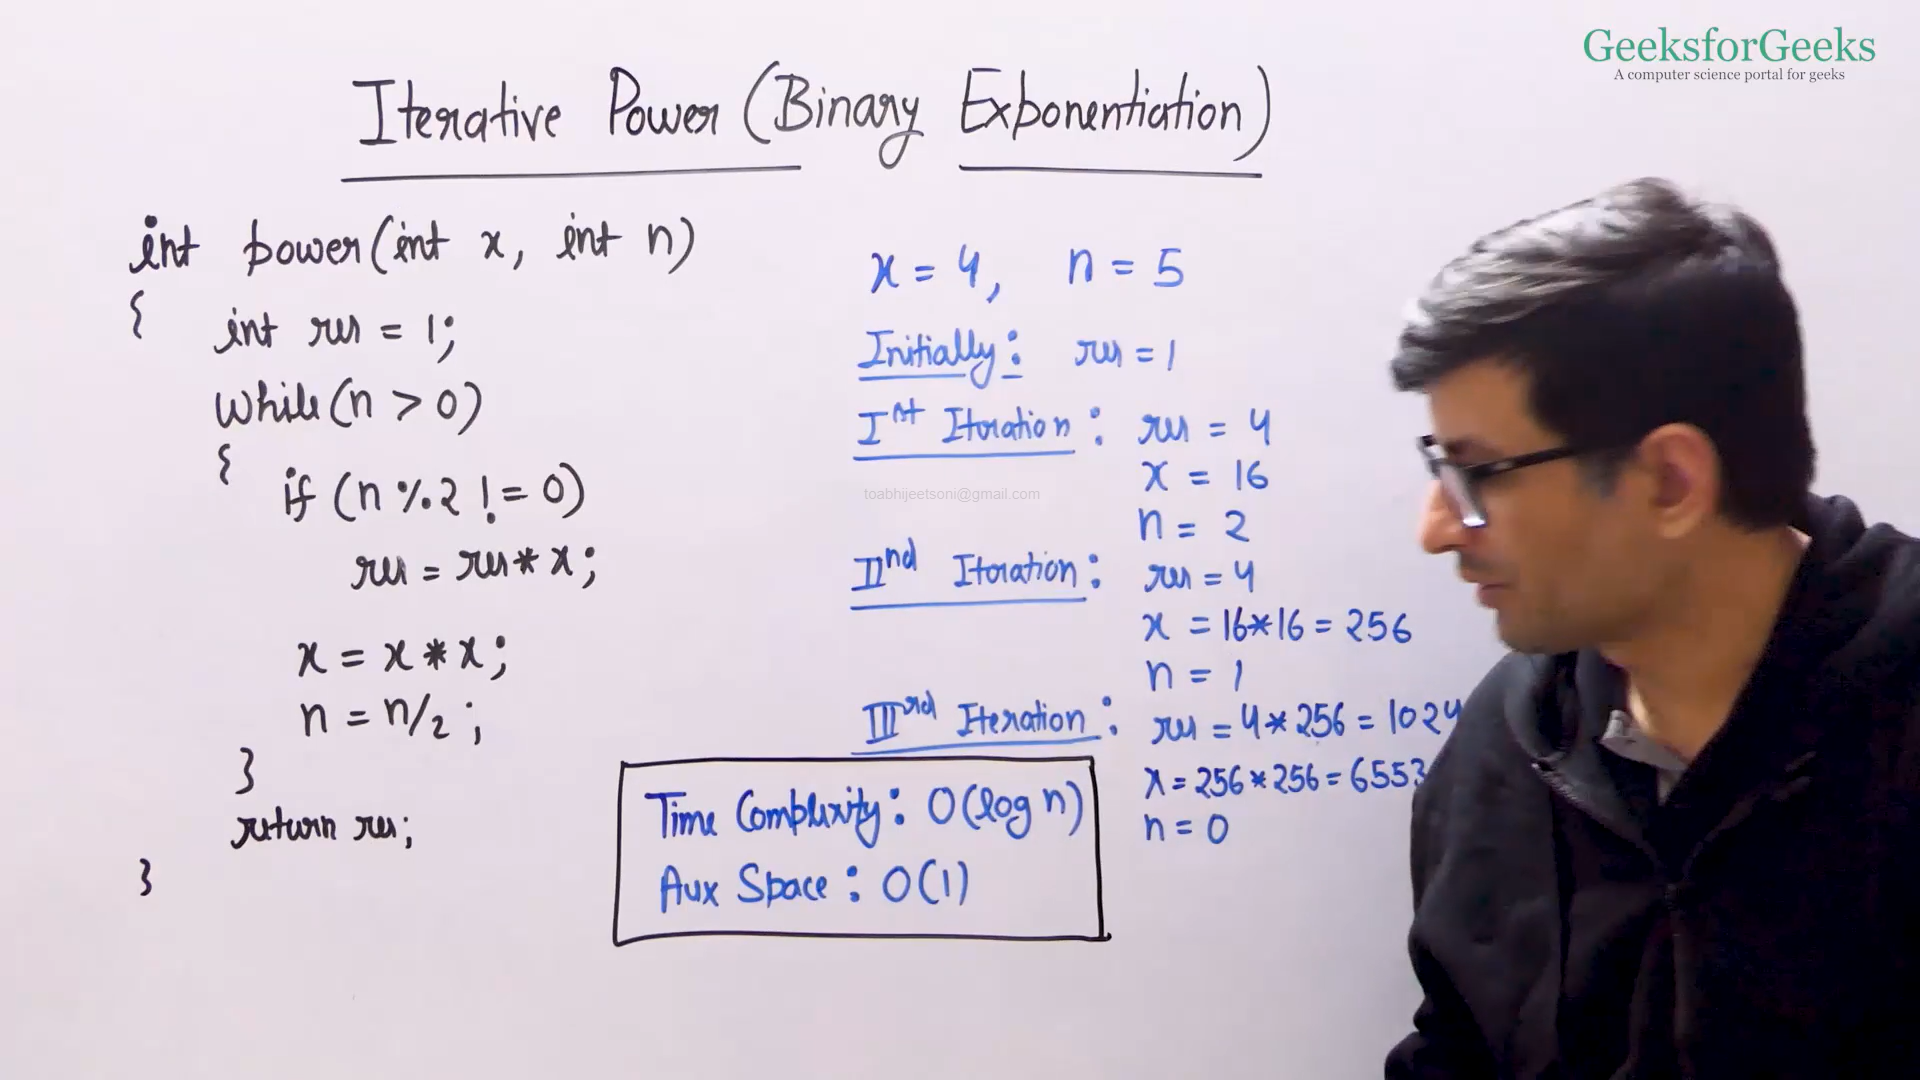 GeeksforGeeks
A computer science portal for geeks
Iterative Power (Binary Exponentiation)
int power(int x, int n)
{
int res = 1;
while(n > 0)
{
if (n % 2 != 0)
res = res * x;
x = x * x;
n = n/2;
}
return res;
}
x = 4, n = 5
Initially: res = 1
Ist Iteration: res = 4
x = 16
toabhijeetsoni@gmail.com
n = 2
IInd Iteration: res = 4
x = 16*16 = 256
n = 1
IIIrd Iteration: res = 4*256 = 1024
x = 256*256 = 6553
n = 0
Time Complexity: O(log n)
Aux Space: O(1)